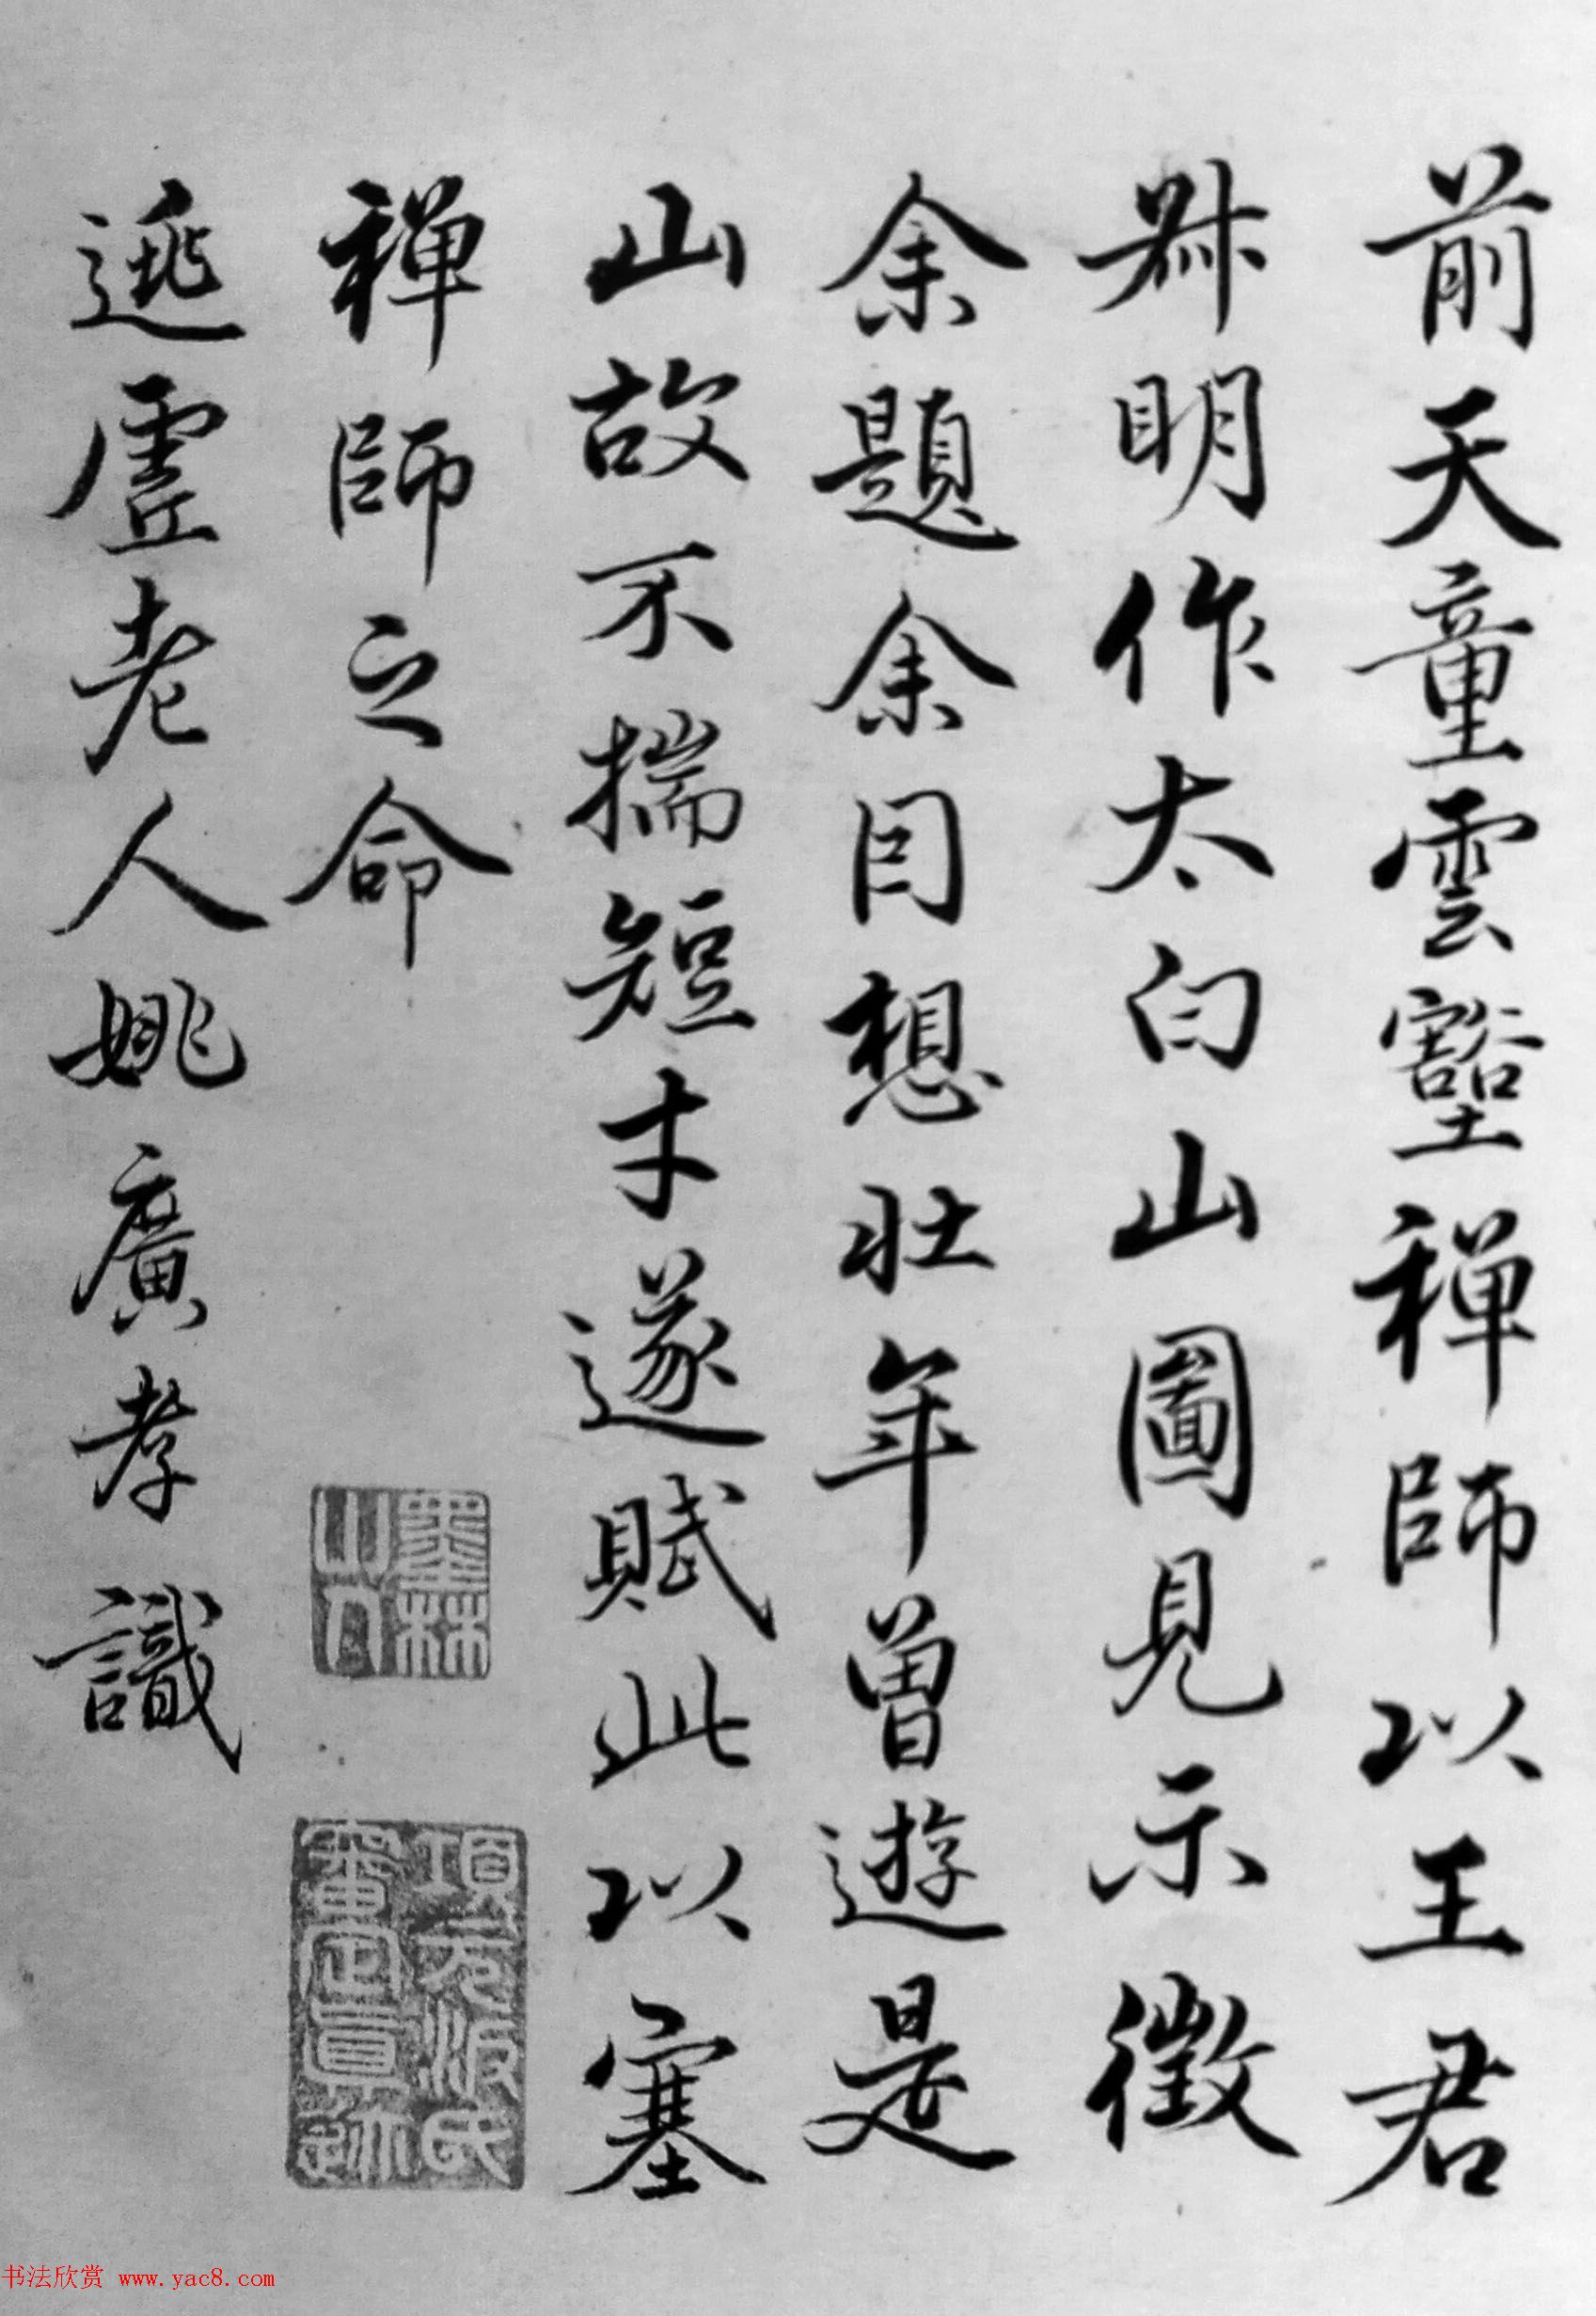 前天童雲壑禪師以王君
叔明作太白山圖見示徵
余題余因想壯年曾遊是
山故不揣短才遂賦此以塞
禪師之命
逃虛老人姚廣孝識
墨林山人
項元汴氏審定真跡
书法欣赏 www.yac8.com